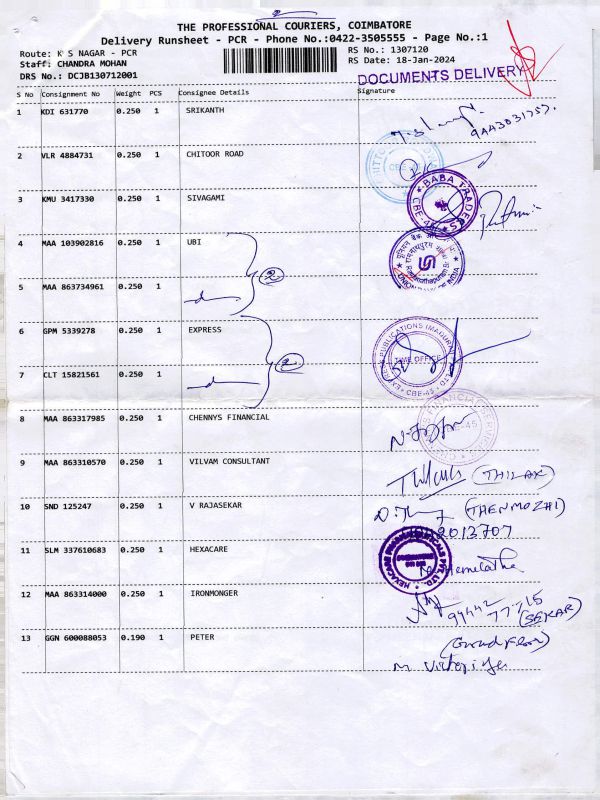 THE PROFESSIONAL COURIERS, COIMBATORE
Delivery Runsheet - PCR - Phone No.:0422-3505555 - Page No.:1
Route: K S NAGAR - PCR
RS No.: 1307120
Staff: CHANDRA MOHAN
RS Date: 18-Jan-2024
DRS No.: DCJB130712001
DOCUMENTS DELIVERY
S No Consignment No Weight PCS Consignee Details Signature
1 KDI 631770 0.250 1 SRIKANTH
9443031757.
2 VLR 4884731 0.250 1 CHITOOR ROAD
★ BABA TRADERS ★ CBE-45
3 KMU 3417330 0.250 1 SIVAGAMI
4 MAA 103902816 0.250 1 UBI
2
UNION BANK OF INDIA
5 MAA 863734961 0.250 1
6 GPM 5339278 0.250 1 EXPRESS
2
TIME OFFICE
CBE-45
7 CLT 15821561 0.250 1
8 MAA 863317985 0.250 1 CHENNYS FINANCIAL
9 MAA 863310570 0.250 1 VILVAM CONSULTANT
(THILAK)
10 SND 125247 0.250 1 V RAJASEKAR
(THENMOZHI)
11 SLM 337610683 0.250 1 HEXACARE
Hemalatha
12 MAA 863314000 0.250 1 IRONMONGER
99442 77715
(SEKAR)
13 GGN 600088053 0.190 1 PETER
(Ground Floor)